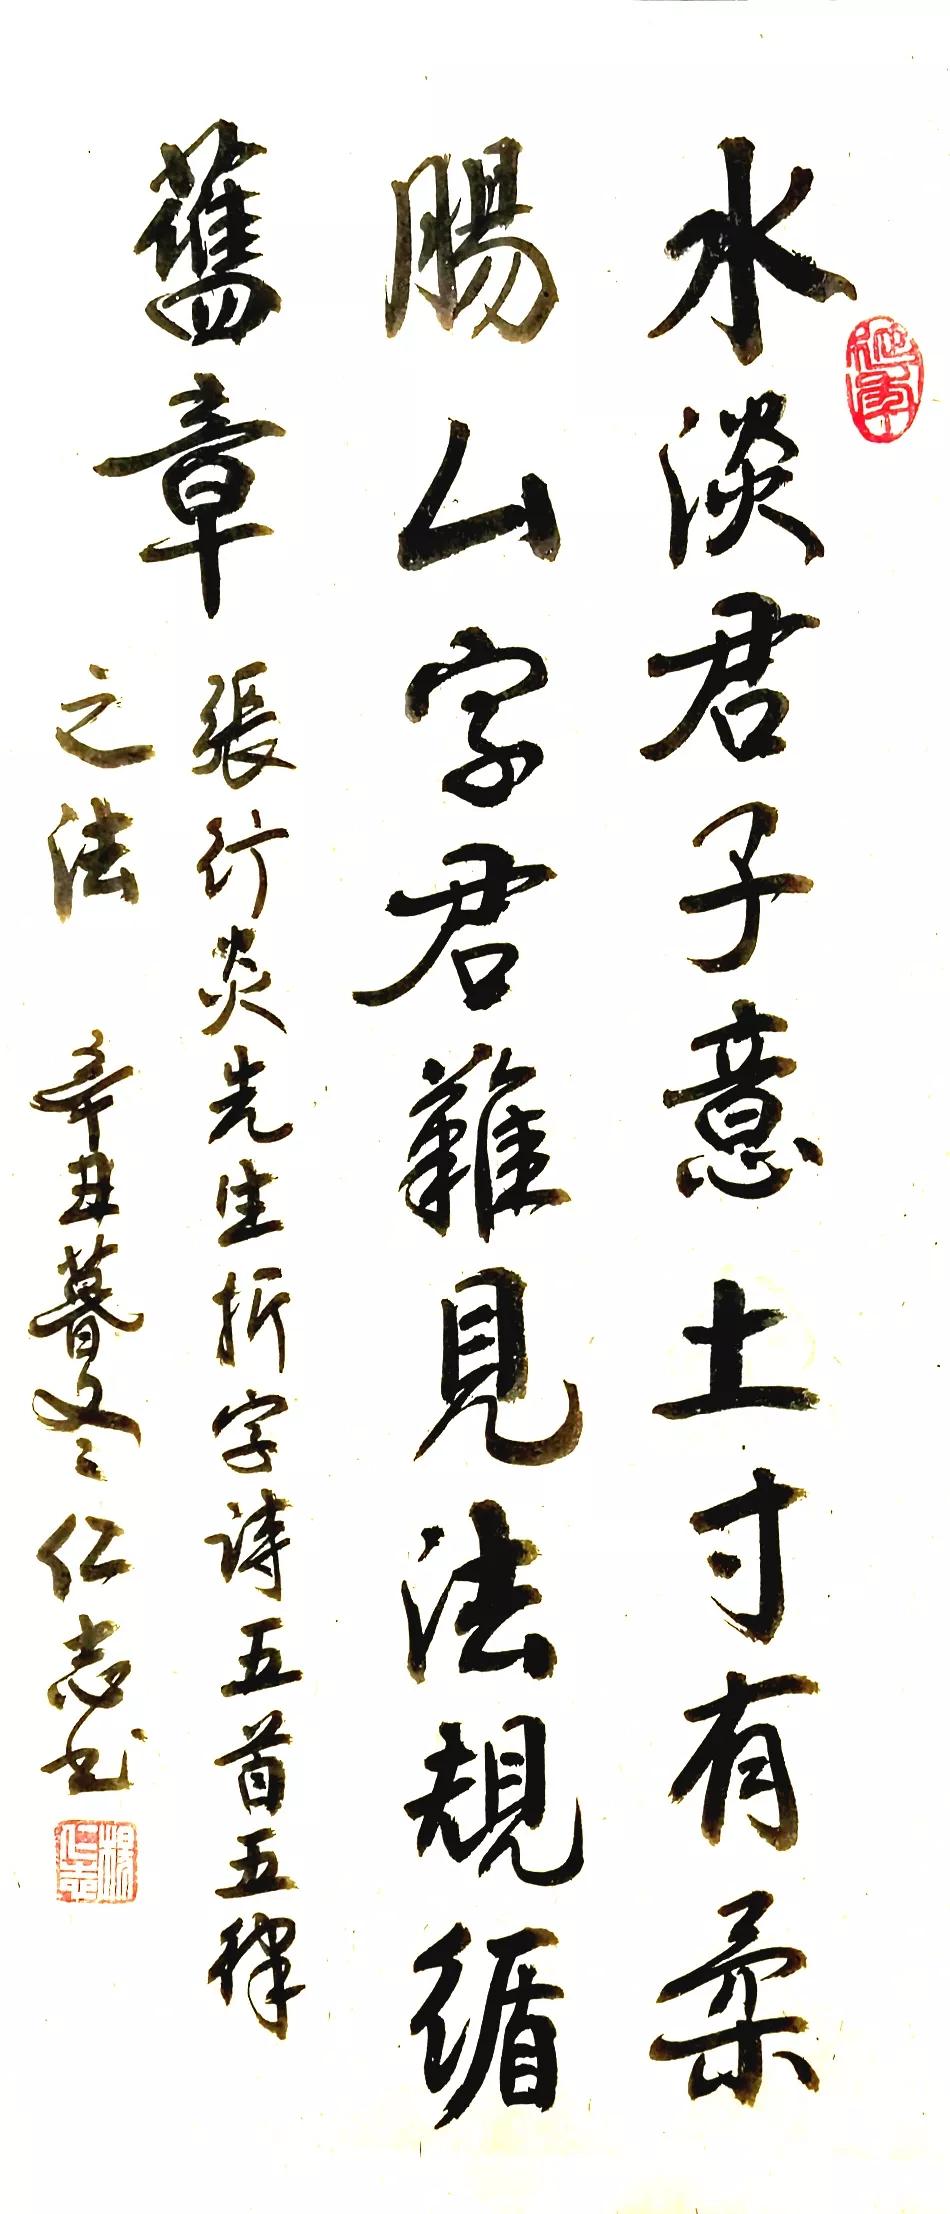 水淡君子意土寸有柔
腸厶字君難見法規循
舊章
張行炎先生折字詩五首五律
之法 辛丑暮冬仁志书
楊仁志